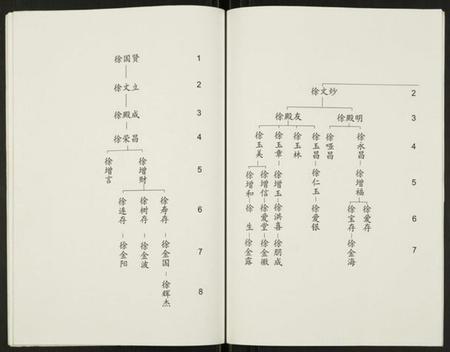 徐国贤 1
徐文立 2
徐殿成 3
徐荣昌 4
徐增言 徐增财 5
徐连存 徐树存 徐寿存 6
徐金阳 徐金波 徐金国 7
徐辉杰 8
徐文炒 2
徐殿友 徐殿明 3
徐玉美 徐玉章 徐玉林 徐玉昌 徐哑昌 徐永昌 4
徐增和 徐增信 徐增玉 徐仁玉 徐增福 5
徐生 徐爱堂 徐洪喜 徐爱银 徐宝存 徐爱存 6
徐金露 徐金徽 徐朋成 徐金海 7